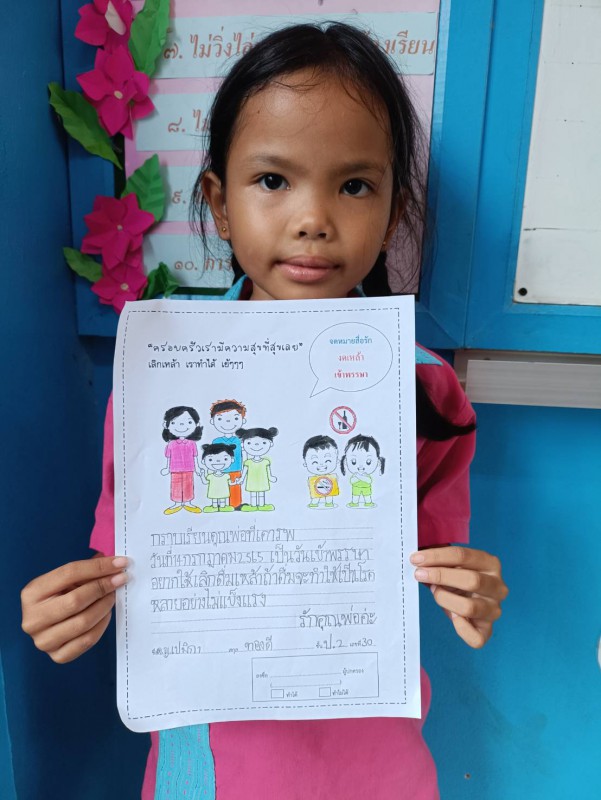 ๗. ไม่วิ่งไล่
งเรียน
๘. ไ
๙.
๑๐. การ
"ครอบครัวเรามีความสุขที่สุขเลย"
เลิกเหล้า เราทำได้ เย้ๆๆๆ
จดหมายสื่อรัก
งดเหล้า
เข้าพรรษา
กราบเรียนคุณพ่อที่เคารพ
วันที่14กรกฎาคม2565 เป็นวันเข้าพรรษา
อยากให้เลิกดื่มเหล้าถ้าดื่มจะทำให้เป็นโรค
หลายอย่างไม่แข็งแรง
รักคุณพ่อค่ะ
ชั้น ป.2 เลขที่ 30
ลงชื่อ ผู้ปกครอง
ทำได้ ทำไม่ได้